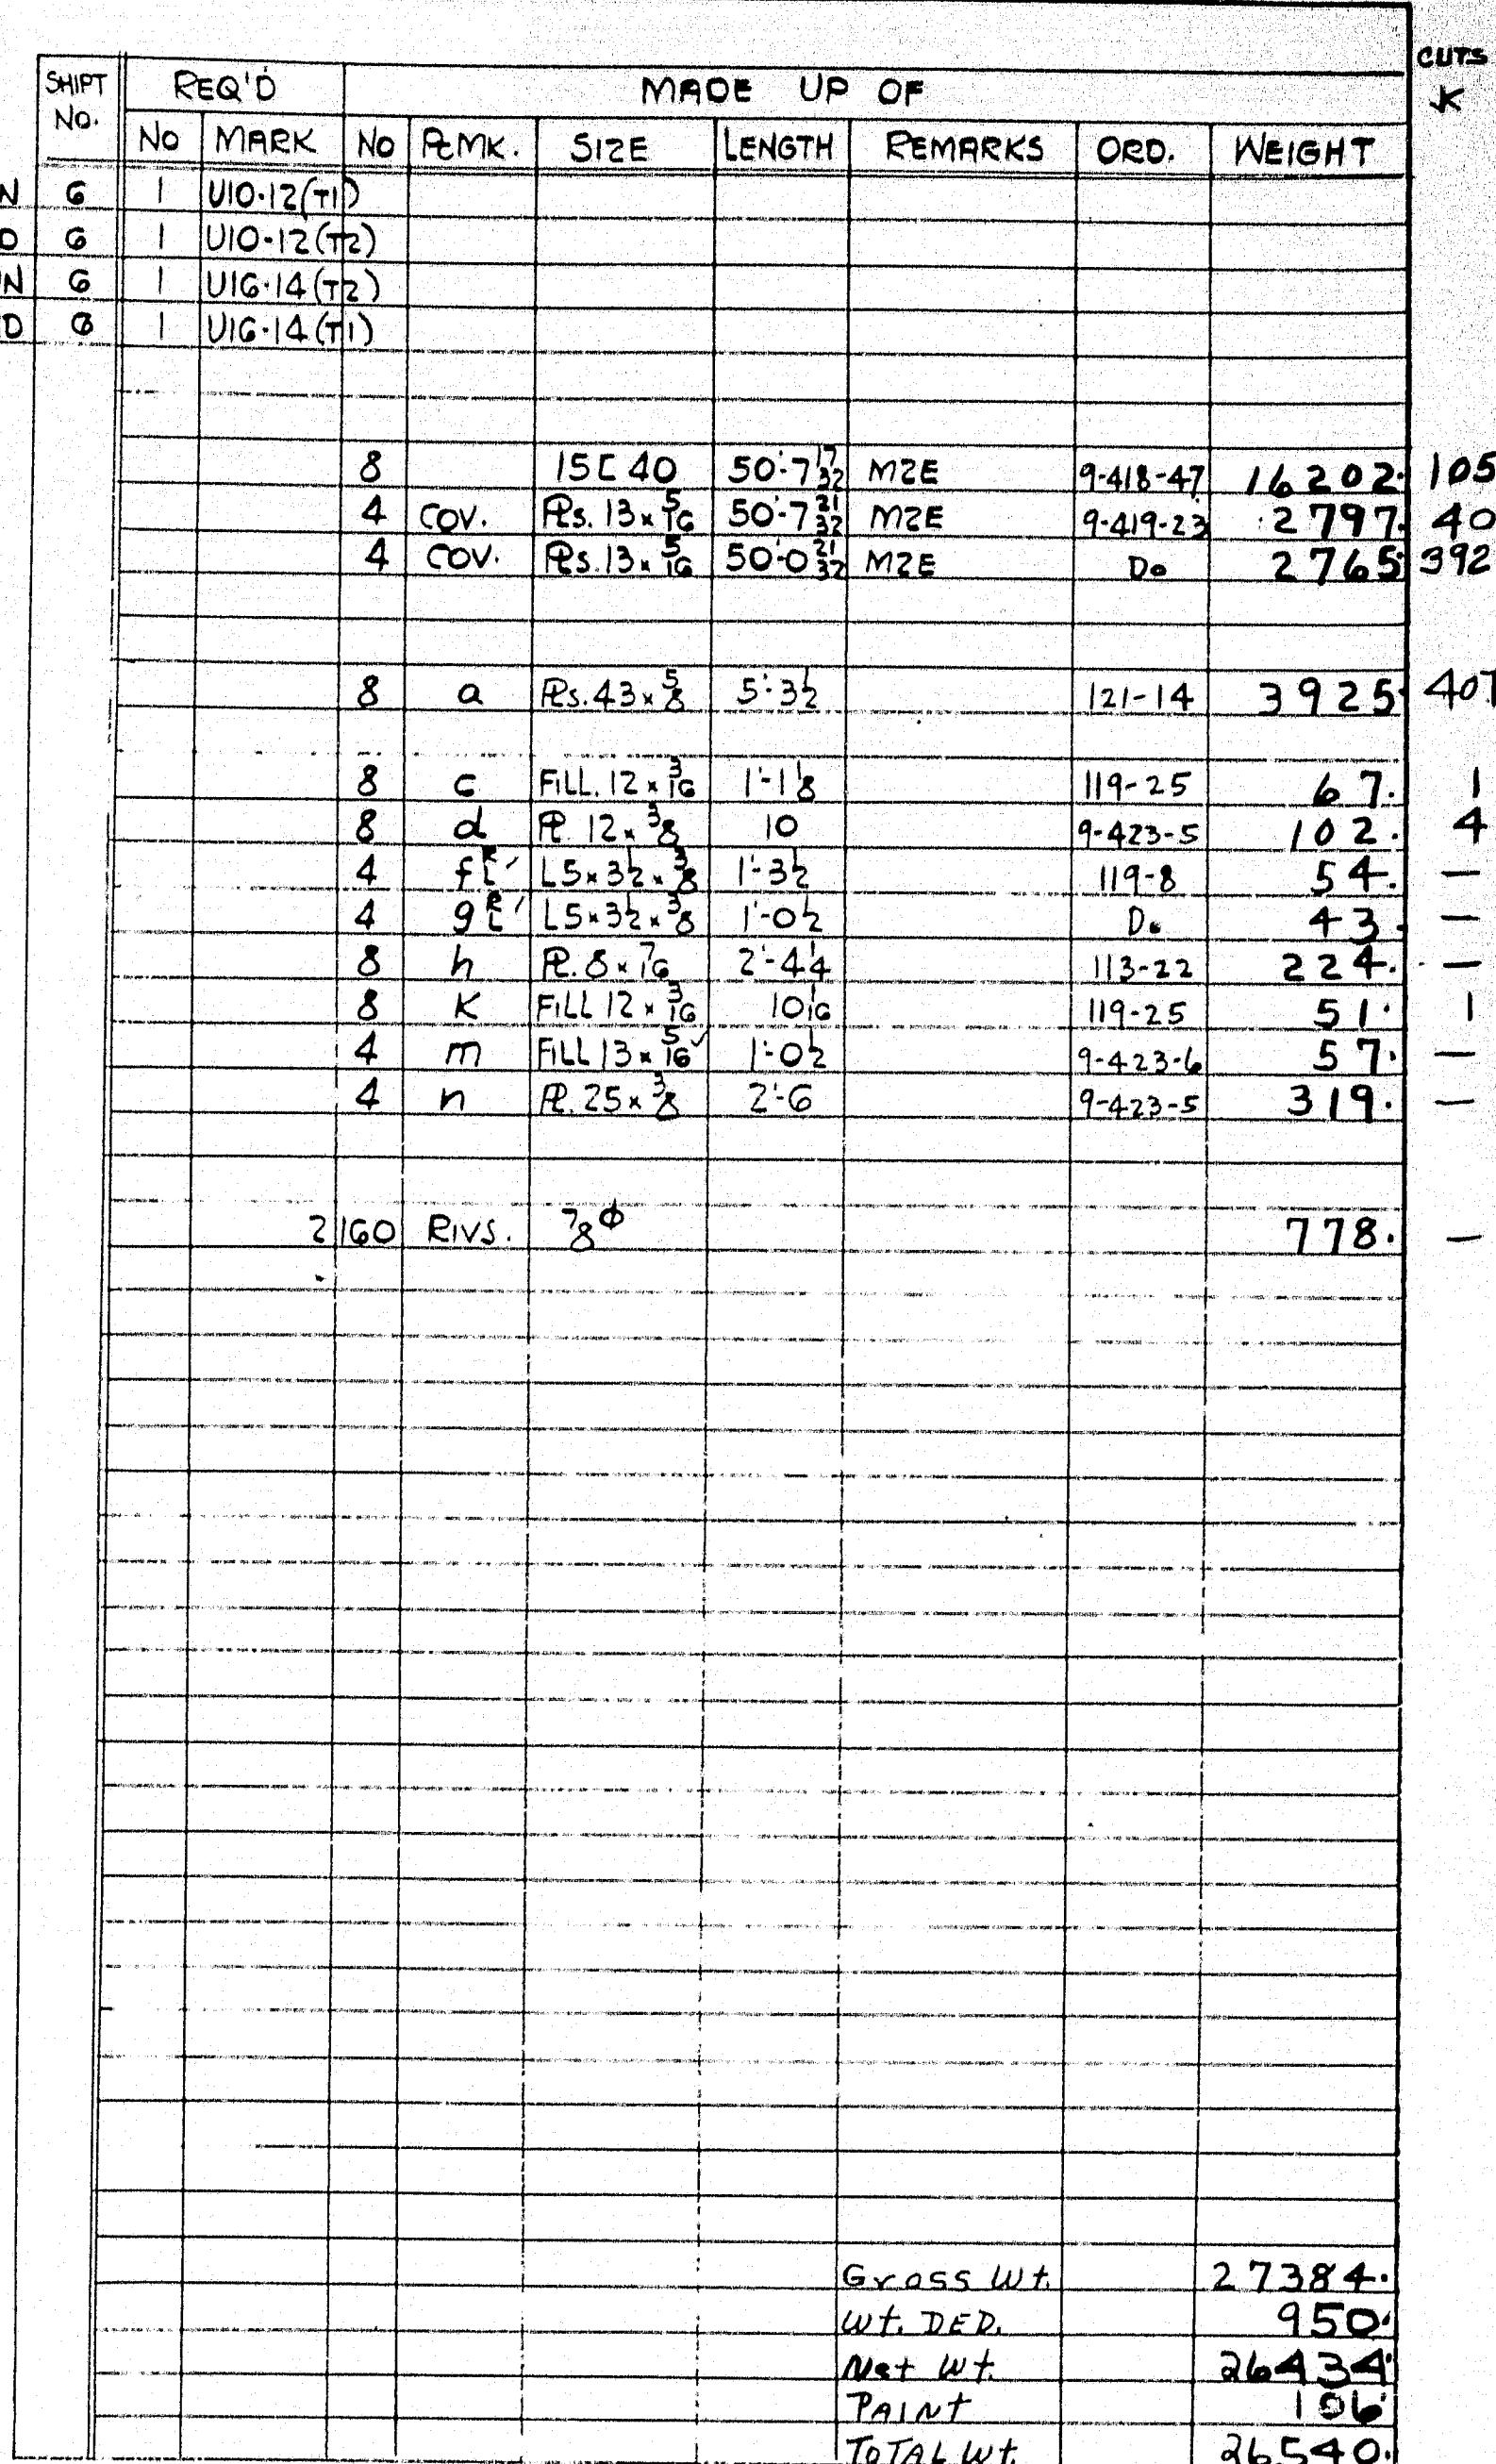 CUTS
SHIPT No. REQ'D MADE UP OF
No MARK No PLMK. SIZE LENGTH REMARKS ORD. WEIGHT
N 6 1 U10-12(T1)
D 6 1 U10-12(T2)
N 6 1 U16-14(T2)
D 6 1 U16-14(T1)
8 15[ 40 50'-7 17/32 M2E 9-418-47 16202. 105
4 COV. PLs. 13x5/16 50'-7 21/32 M2E 9-419-23 2797. 40
4 COV. PLs. 13x5/16 50'-0 21/32 M2E Do 2765. 392
8 a PLs. 43x5/8 5'-3 1/2 121-14 3925. 407
8 c FILL. 12x3/16 1'-1 1/8 119-25 67. 1
8 d PL. 12x3/8 10 9-423-5 102. 4
4 f R/L L5x3 1/2x3/8 1'-3 1/2 119-8 54. —
4 g R/L L5x3 1/2x3/8 1'-0 1/2 Do 43. —
8 h PL. 8x7/16 2'-4 1/4 113-22 224. —
8 K FILL 12x3/16 10 1/16 119-25 51. 1
4 m FILL 13x5/16 1'-0 1/2 9-423-6 57. —
4 n PL. 25x3/8 2'-6 9-423-5 319. —
2160 RIVS. 7/8 φ 778. —
Gross Wt. 27384.
Wt. DED. 950.
Net Wt. 26434.
PAINT 106.
TOTAL Wt. 26540.